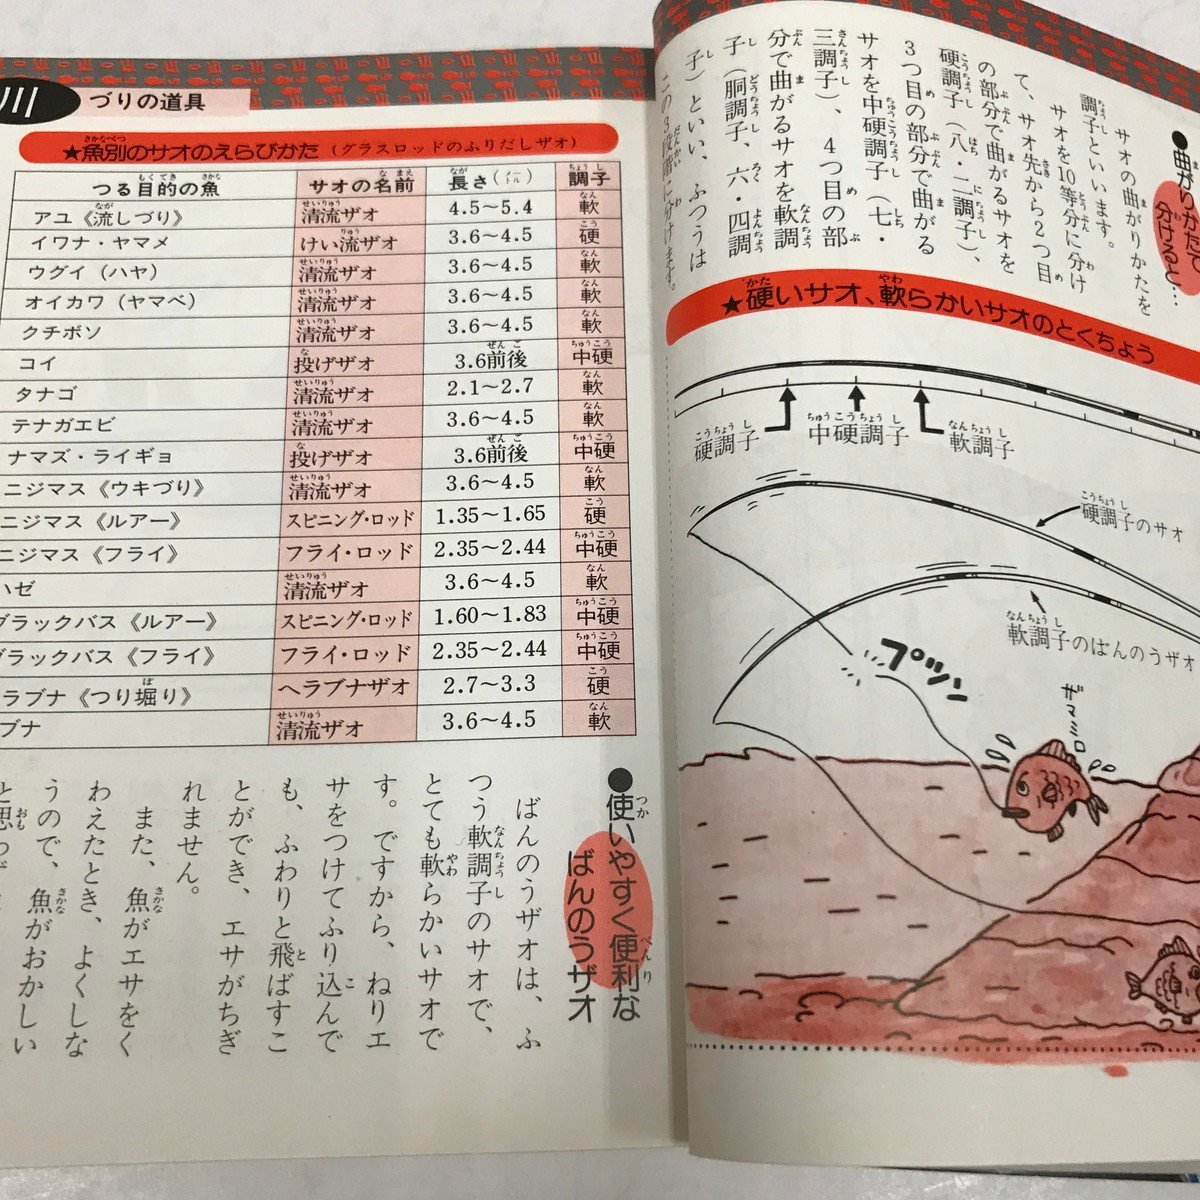 ●曲がりかたで
分けると…
サオの曲がりかたを
調子といいます。
サオを10等分に分け
て、サオ先から2つ目
の部分で曲がるサオを
硬調子(八・二調子)、
3つ目の部分で曲がる
サオを中硬調子(七・
三調子)、4つ目の部
分で曲がるサオを軟調
子(胴調子、六・四調
子)といい、ふつうは
この3段階に分けます。
★硬いサオ、軟らかいサオのとくちょう
硬調子 中硬調子 軟調子
硬調子のサオ
軟調子のばんのうザオ
プツン
ザマミロ
川 づりの道具
★魚別のサオのえらびかた(グラスロッドのふりだしザオ)
つる目的の魚 サオの名前 長さ(メートル) 調子
アユ《流しづり》 清流ザオ 4.5〜5.4 軟
イワナ・ヤマメ けい流ザオ 3.6〜4.5 硬
ウグイ(ハヤ) 清流ザオ 3.6〜4.5 軟
オイカワ(ヤマベ) 清流ザオ 3.6〜4.5 軟
クチボソ 清流ザオ 3.6〜4.5 軟
コイ 投げザオ 3.6前後 中硬
タナゴ 清流ザオ 2.1〜2.7 軟
テナガエビ 清流ザオ 3.6〜4.5 軟
ナマズ・ライギョ 投げザオ 3.6前後 中硬
ニジマス《ウキづり》 清流ザオ 3.6〜4.5 軟
ニジマス《ルアー》 スピニング・ロッド 1.35〜1.65 硬
ニジマス《フライ》 フライ・ロッド 2.35〜2.44 中硬
ハゼ 清流ザオ 3.6〜4.5 軟
ブラックバス《ルアー》 スピニング・ロッド 1.60〜1.83 中硬
ブラックバス《フライ》 フライ・ロッド 2.35〜2.44 中硬
ラブナ《つり堀り》 ヘラブナザオ 2.7〜3.3 硬
ブナ 清流ザオ 3.6〜4.5 軟
●使いやすく便利な
ばんのうザオ
ばんのうザオは、ふ
つう軟調子のサオで、
とても軟らかいサオで
す。ですから、ねりエ
サをつけてふり込んで
も、ふわりと飛ばすこ
とができ、エサがちぎ
れません。
また、魚がエサをく
わえたとき、よくしな
うので、魚がおかしい
と思わず